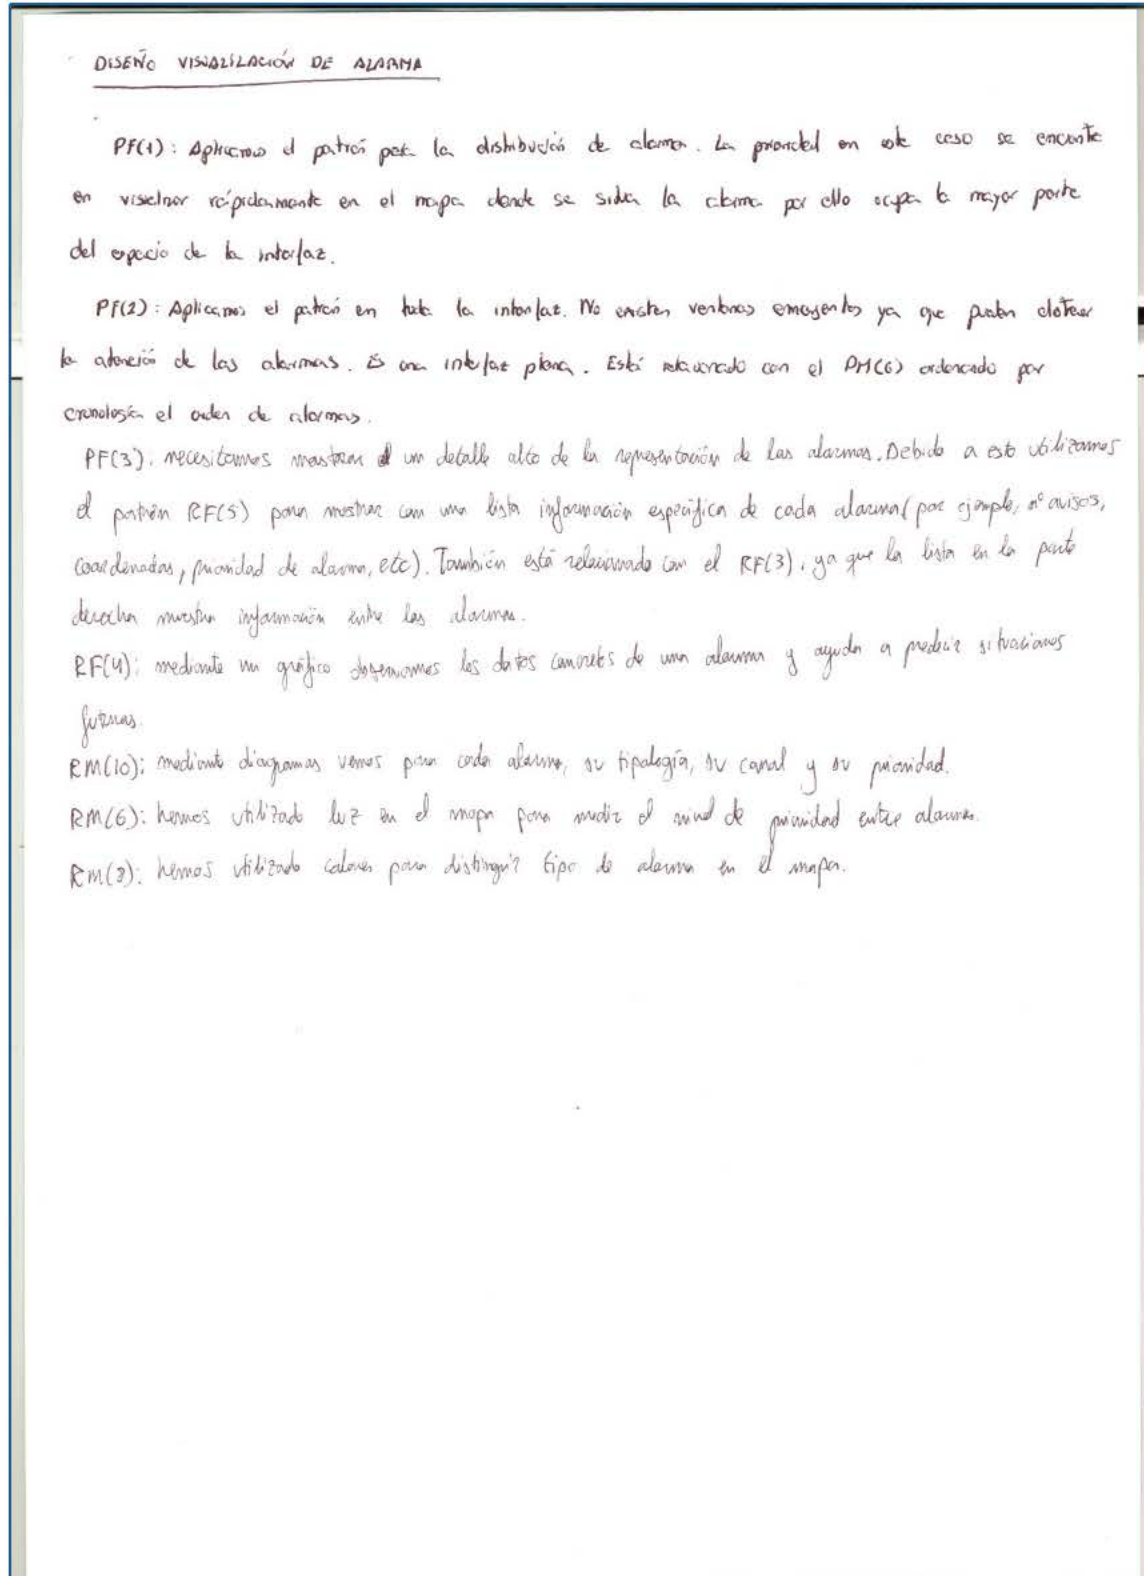 DISEÑO VISUALIZACIÓN DE ALARMA
PF(1): Aplicamos el patrón para la distribución de alarma. La prioridad en este caso se encuentra
en visualizar rápidamente en el mapa donde se sitúa la alarma por ello ocupa la mayor parte
del espacio de la interfaz.
PF(2): Aplicamos el patrón en toda la interfaz. No existen ventanas emergentes ya que pueden
la atención de las alarmas. Es una interfaz plana. Está relacionado con el PM(6) ordenando por
cronología el orden de alarmas.
PF(3): necesitamos mostrar un detalle alto de la representación de las alarmas. Debido a esto utilizamos
el patrón RF(5) para mostrar con una lista información específica de cada alarma (por ejemplo, nº avisos,
coordenadas, prioridad de alarma, etc). También está relacionado con el RF(3), ya que la lista en la parte
derecha muestra información entre las alarmas.
RF(4): mediante un gráfico observamos los datos concretos de una alarma y ayuda a predecir situaciones
futuras.
RM(10): mediante diagramas vemos para cada alarma, su tipología, su canal y su prioridad.
RM(6): hemos utilizado luz en el mapa para medir el nivel de prioridad entre alarmas.
RM(8): hemos utilizado colores para distinguir tipo de alarma en el mapa.